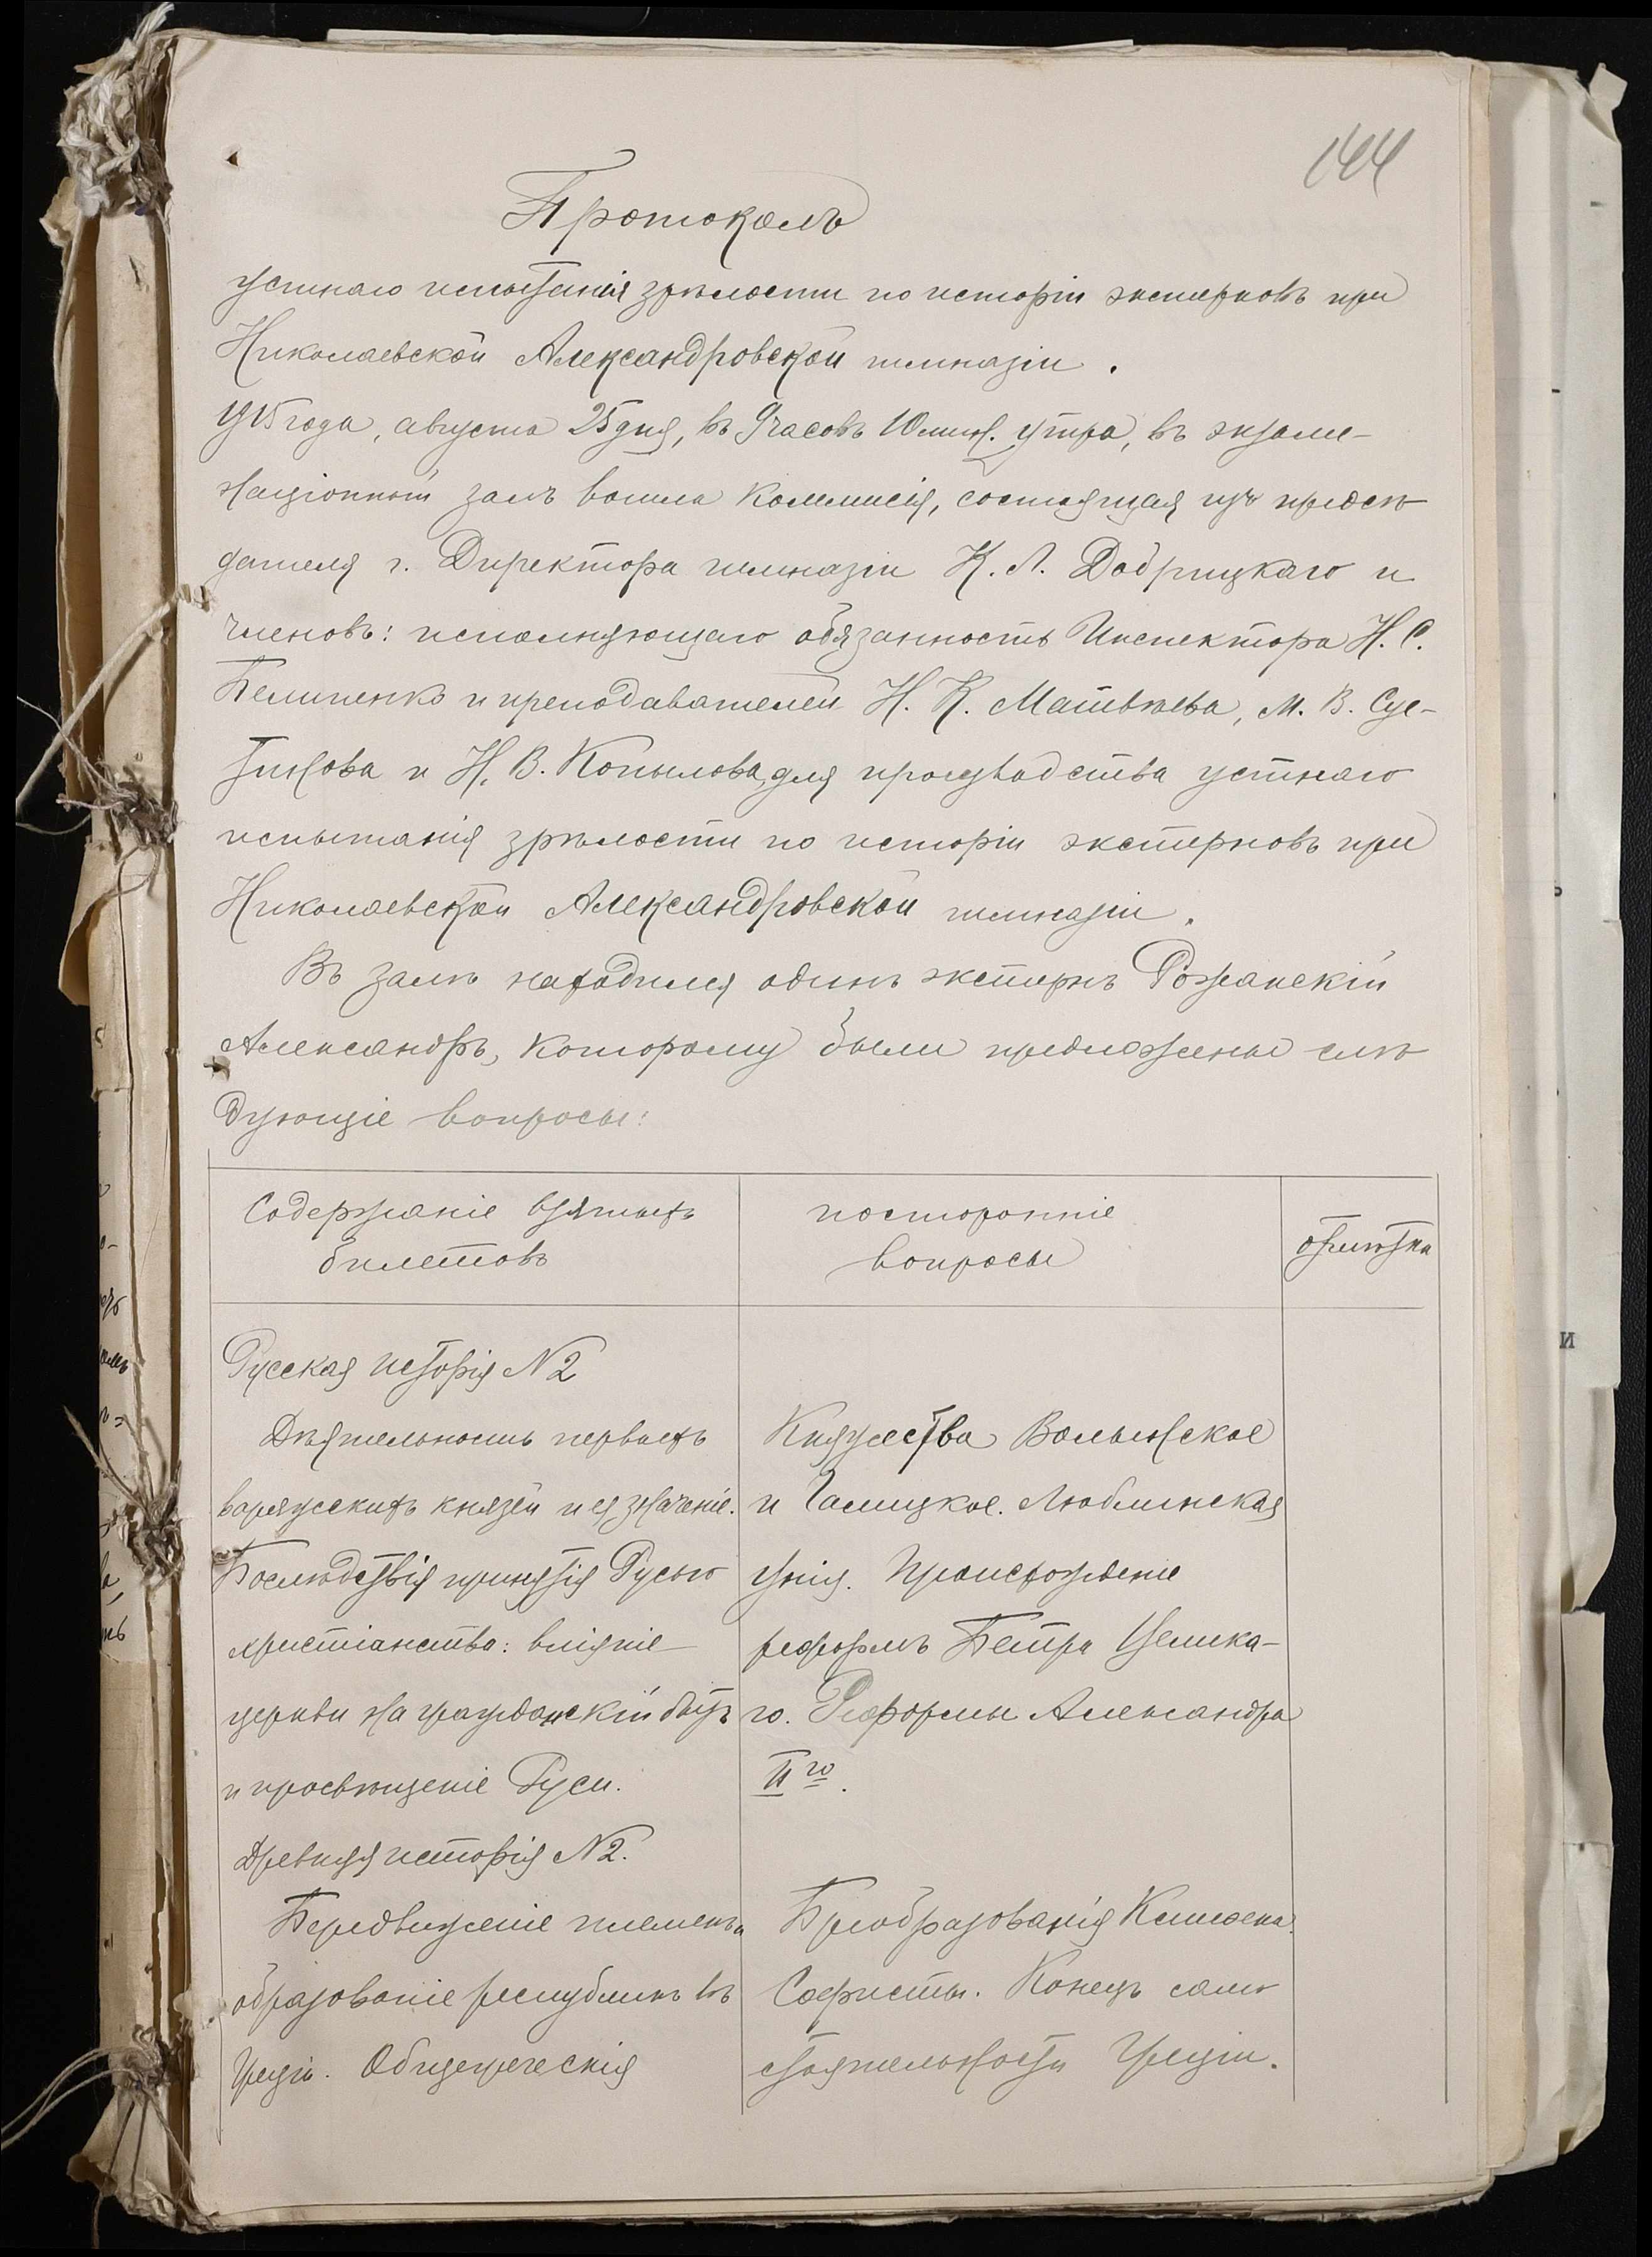 144
Протоколъ
устнаго испытанія зрѣлости по исторіи экстерновъ при
Николаевской Александровской гимназіи.
1915 года, августа 25 дня, въ 9 часовъ 10 мин. утра, въ экзаме-
націонный залъ вошла Коммисія, состоящая изъ предсѣ
дателя г. Директора гимназіи К. Л. Добрицкаго и
членовъ: исполняющаго обязанность Инспектора Н. С.
и преподавателей Н. К. Матвѣева, М. В. Сус-
Н. В. Копылова, для производства устнаго
испытанія зрѣлости по исторіи экстерновъ при
Николаевской Александровской гимназіи.
Въ залѣ находился одинъ экстернъ Рожанскій
Александръ, которому были предложены слѣ
дующіе вопросы:
Содержаніе взятыхъ
билетовъ
посторонніе
вопросы
отмѣтка
Русская исторія N 2
Дѣятельность первыхъ
варяжскихъ князей и ея значеніе.
Послѣдствія принятія Русью
христіанства: вліяніе
церкви на гражданскій бытъ
и просвѣщеніе Руси.
Древняя исторія N 2.
Передвиженіе племенъ и
образованіе республикъ въ
Греціи. Общегреческія
Княжества Волынское
и Галицкое. Люблинская
унія. Происхожденіе
реформъ Петра Велика-
го. Реформы Александра
II го.
Преобразованія Клисѳена.
Софисты. Конецъ само
стоятельности Греціи.